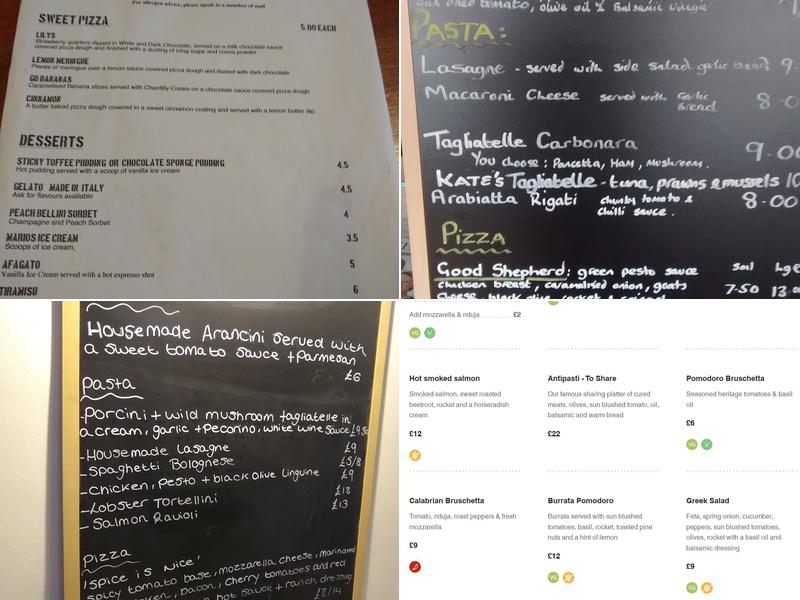 For allergen advice, please speak to a member of staff
SWEET PIZZA
5.00 EACH
LILYS
Strawberry quarters dipped in White and Dark Chocolate, served on a milk chocolate sauce
covered pizza dough and finished with a dusting of icing sugar and cocoa powder
LEMON MERINGUE
Pieces of meringue over a lemon sauce covered pizza dough and dusted with dark chocolate
GO BANANAS
Caramelised Banana slices served with Chantilly Cream on a chocolate sauce covered pizza dough
CINNAMON
A butter baked pizza dough covered in a sweet cinnamon coating and served with a lemon butter dip.
DESSERTS
STICKY TOFFEE PUDDING OR CHOCOLATE SPONGE PUDDING 4.5
Hot pudding served with a scoop of vanilla ice cream
GELATO MADE IN ITALY 4.5
Ask for flavours available
PEACH BELLINI SORBET 4
Champagne and Peach Sorbet
MARIOS ICE CREAM 3.5
Scoops of ice cream,
AFAGATO 5
Vanilla Ice Cream served with a hot espresso shot
TIRAMISU 6
sun dried tomato, olive oil & Balsamic Vinegar
PASTA:
Lasagne - served with side salad garlic bread 9.
Macaroni Cheese served with Garlic 8.0
Bread
Tagliatelle Carbonara 9.00
You choose: Pancetta, Ham, Mushroom.
KATE'S Tagliatelle - tuna, prawns & mussels 10
Arabiatta Rigati chunky tomato & 8.00
chilli sauce.
PIZZA
Good Shepherd: green pesto sauce sml lge
chicken breast, caramelised onion, goats 7.50 13.0
cheese, black olive, rocket &
Housemade Arancini served with
a sweet tomato sauce + parmesan
£6
Pasta
-Porcini + wild mushroom tagliatelle in
a cream, garlic + pecorino, white wine sauce £9.50
-Housemade Lasagne £9
-Spaghetti Bolognese £5/8
-Chicken, Pesto + black olive linguine £9
-Lobster Tortellini £18
-Salmon Ravioli £13
Pizza
'Spice is Nice'
spicy tomato base, mozzarella cheese, marinated
chicken, bacon, cherry tomatoes and red
hot sauce + ranch dressing
£8/14
Add mozzarella & nduja £2
VG V
Hot smoked salmon
Smoked salmon, sweet roasted
beetroot, rocket and a horseradish
cream
£12
Antipasti - To Share
Our famous sharing platter of cured
meats, olives, sun blushed tomato, oil,
balsamic and warm bread
£22
Pomodoro Bruschetta
Seasoned heritage tomatoes & basil
oil
£6
VG V
Calabrian Bruschetta
Tomato, nduja, roast peppers & fresh
mozzarella
£9
Burrata Pomodoro
Burrata served with sun blushed
tomatoes, basil, rocket, toasted pine
nuts and a hint of lemon
£12
VG
Greek Salad
Feta, spring onion, cucumber,
peppers, sun blushed tomatoes,
olives, rocket with a basil oil and
balsamic dressing
£9
VG